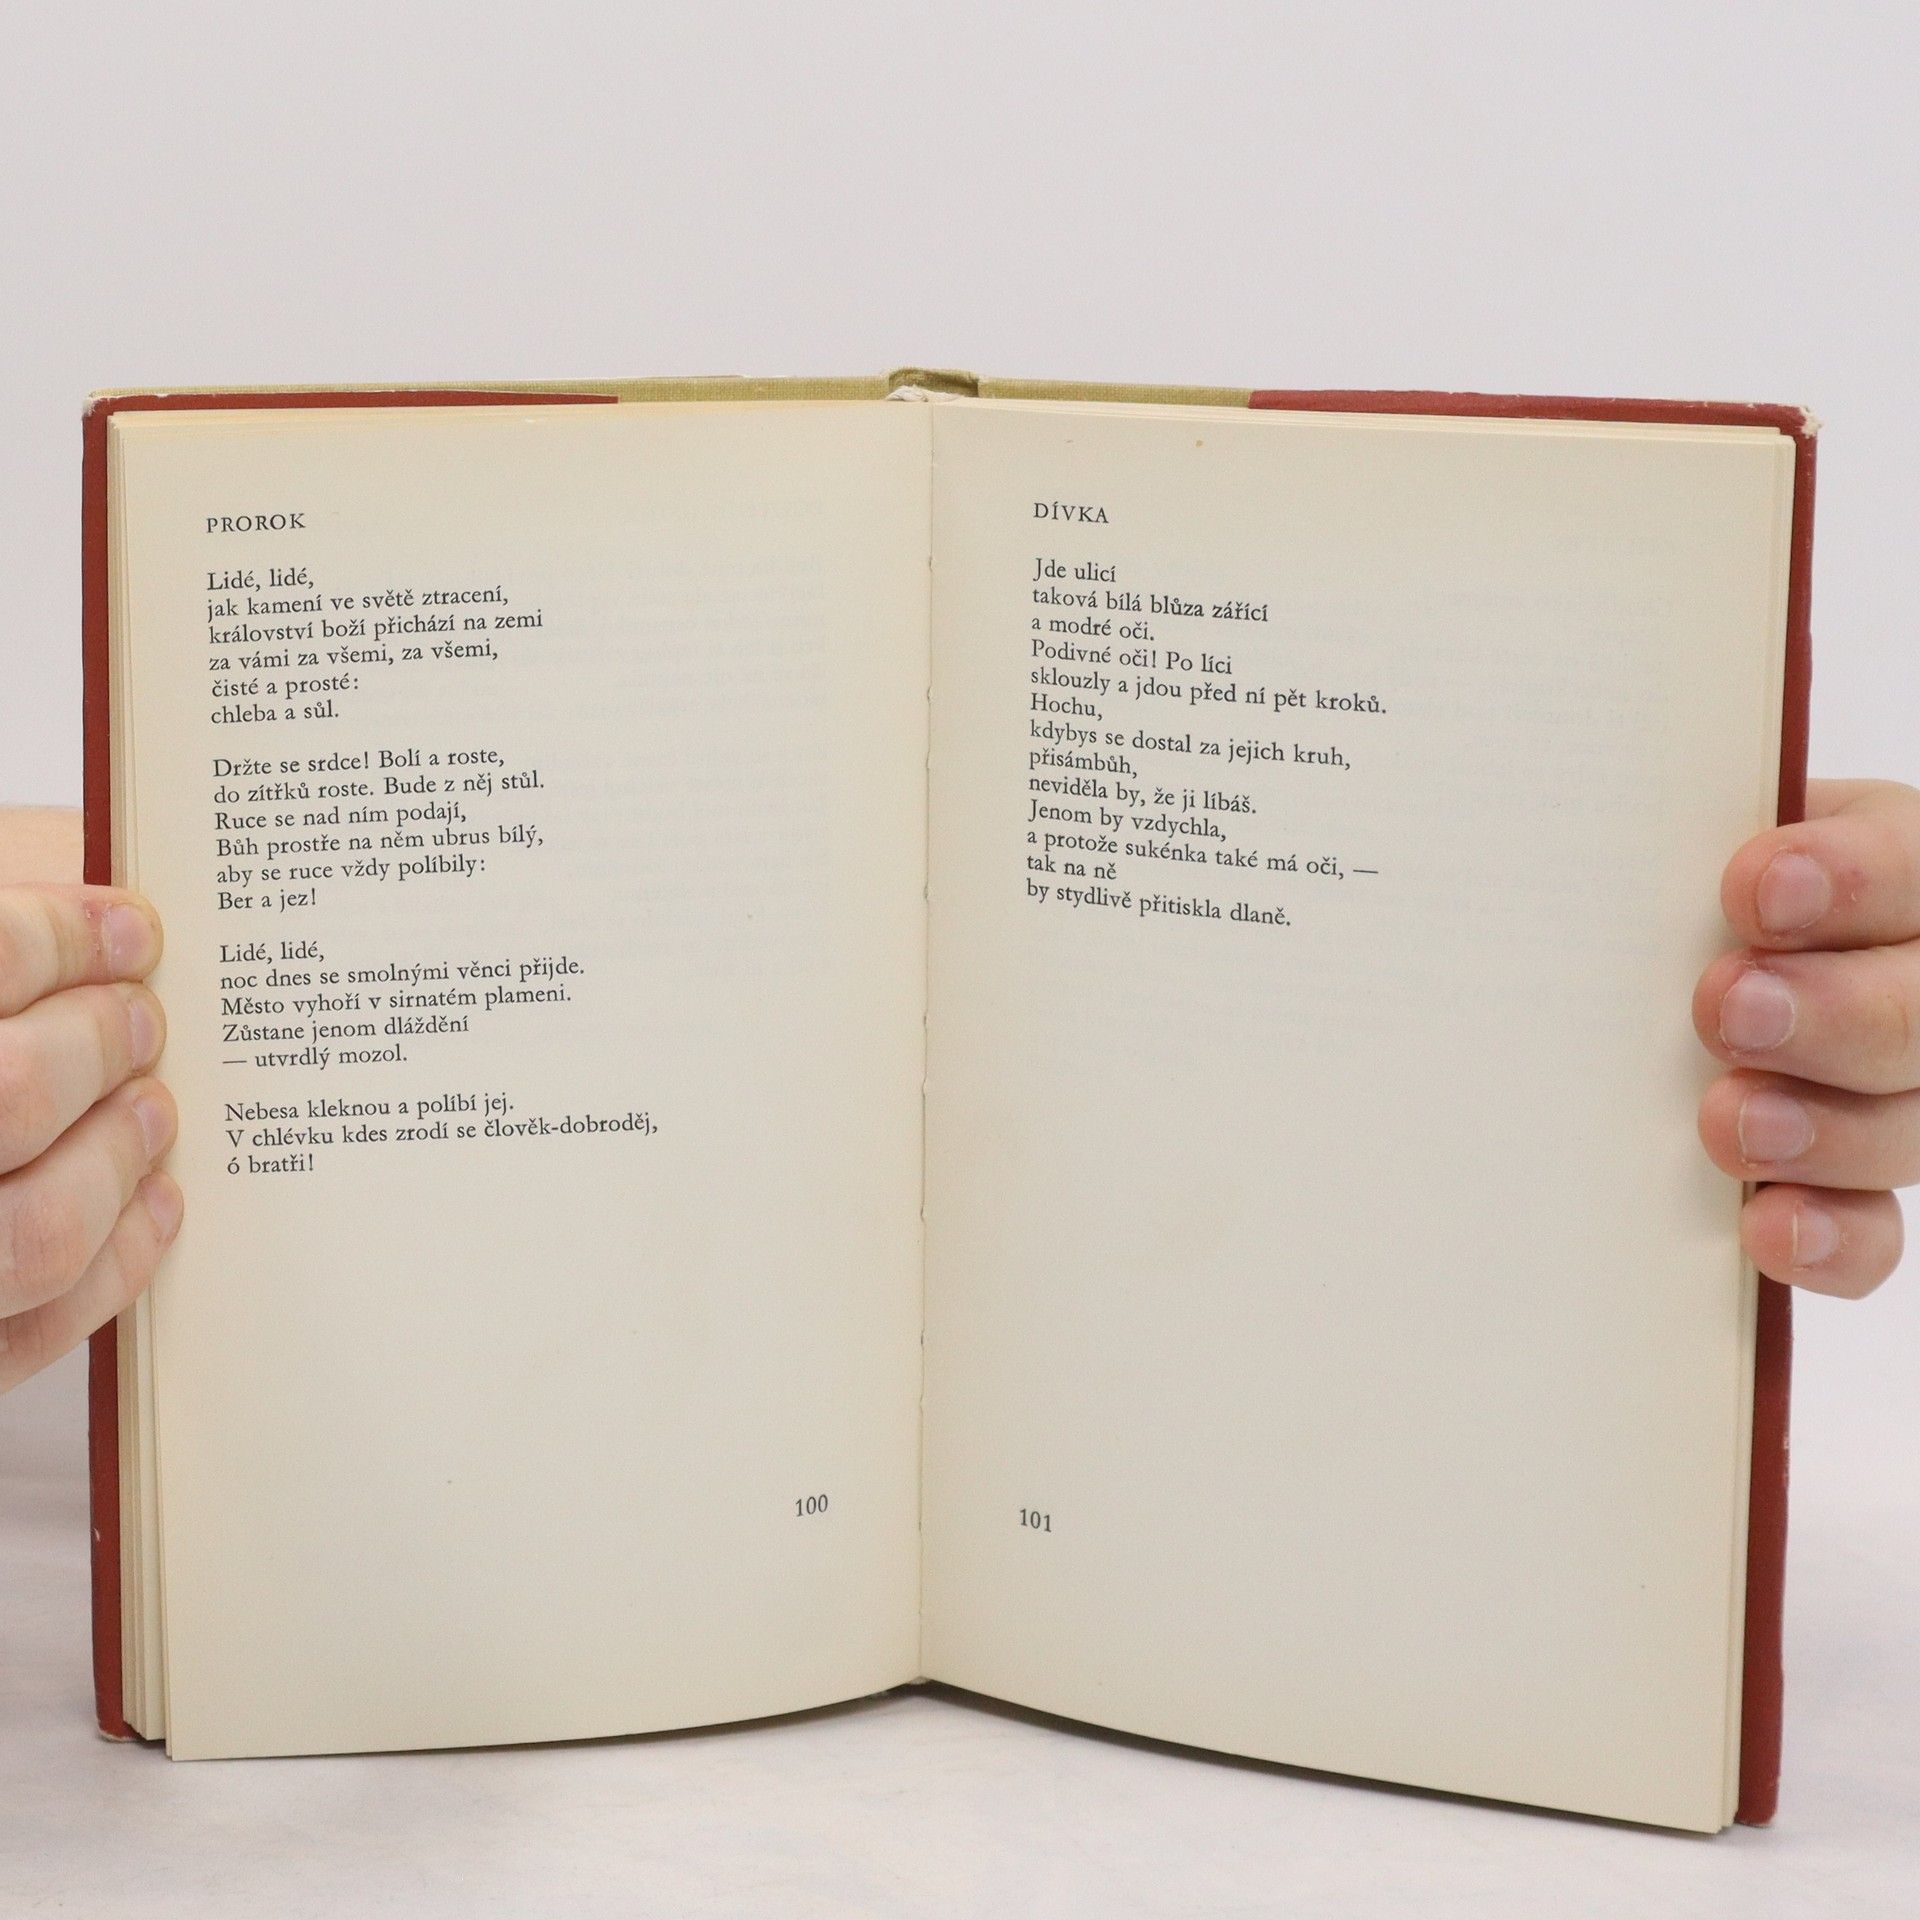 PROROK
Lidé, lidé,
jak kamení ve světě ztracení,
království boží přichází na zemi
za vámi za všemi, za všemi,
čisté a prosté:
chleba a sůl.
Držte se srdce! Bolí a roste,
do zítřků roste. Bude z něj stůl.
Ruce se nad ním podají,
Bůh prostře na něm ubrus bílý,
aby se ruce vždy políbily:
Ber a jez!
Lidé, lidé,
noc dnes se smolnými věnci přijde.
Město vyhoří v sirnatém plameni.
Zůstane jenom dláždění
— utvrdlý mozol.
Nebesa kleknou a políbí jej.
V chlévku kdes zrodí se člověk-dobroděj,
ó bratři!
100
DÍVKA
Jde ulicí
taková bílá blůza zářící
a modré oči.
Podivné oči! Po líci
sklouzly a jdou před ní pět kroků.
Hochu,
kdybys se dostal za jejich kruh,
přisámbůh,
neviděla by, že ji líbáš.
Jenom by vzdychla,
a protože sukénka také má oči, —
tak na ně
by stydlivě přitiskla dlaně.
101